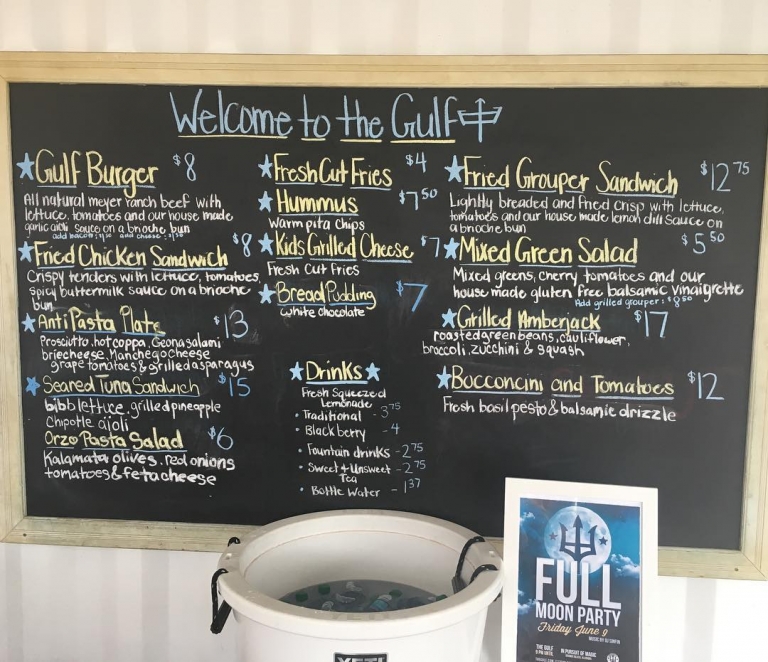 Welcome to the Gulf
Gulf Burger $8
All natural meyer ranch beef with
lettuce, tomatoes and our house made
garlic aioli sauce on a brioche bun
Fried Chicken Sandwich $8
Crispy tenders with lettuce, tomatoes,
spicy buttermilk sauce on a brioche
bun
AntiPasta Plate $13
Prosciutto, hot coppa, Genoa salami
brie cheese, Manchego cheese
grape tomatoes & grilled asparagus
Seared Tuna Sandwich $15
bibb lettuce, grilled pineapple
Chipotle aioli
Orzo Pasta Salad $6
Kalamata olives, red onions
tomatoes & feta cheese
Fresh Cut Fries $4
Hummus $7 50
Warm pita chips
Kids Grilled Cheese $7
Fresh Cut fries
Bread Pudding $7
white chocolate
Drinks
Fresh Squeezed
Lemonade
• Traditional - 3 75
• Blackberry - 4
• Fountain drinks - 2 75
• Sweet & Unsweet - 2 75
Tea
• Bottle Water - 1 37
Fried Grouper Sandwich $12 75
Lightly breaded and fried crisp with lettuce,
tomatoes and our house made lemon dill sauce on
a brioche bun
Mixed Green Salad $5 50
Mixed greens, cherry tomatoes and our
house made gluten free balsamic vinaigrette
Add grilled grouper: $8 50
Grilled Amberjack $17
roasted green beans, cauliflower,
broccoli, zucchini & squash
Bocconcini and Tomatoes $12
Fresh basil pesto & balsamic drizzle
FULL
MOON PARTY
Friday June 9
THE GULF
IN PURSUIT OF MAGIC
YETI